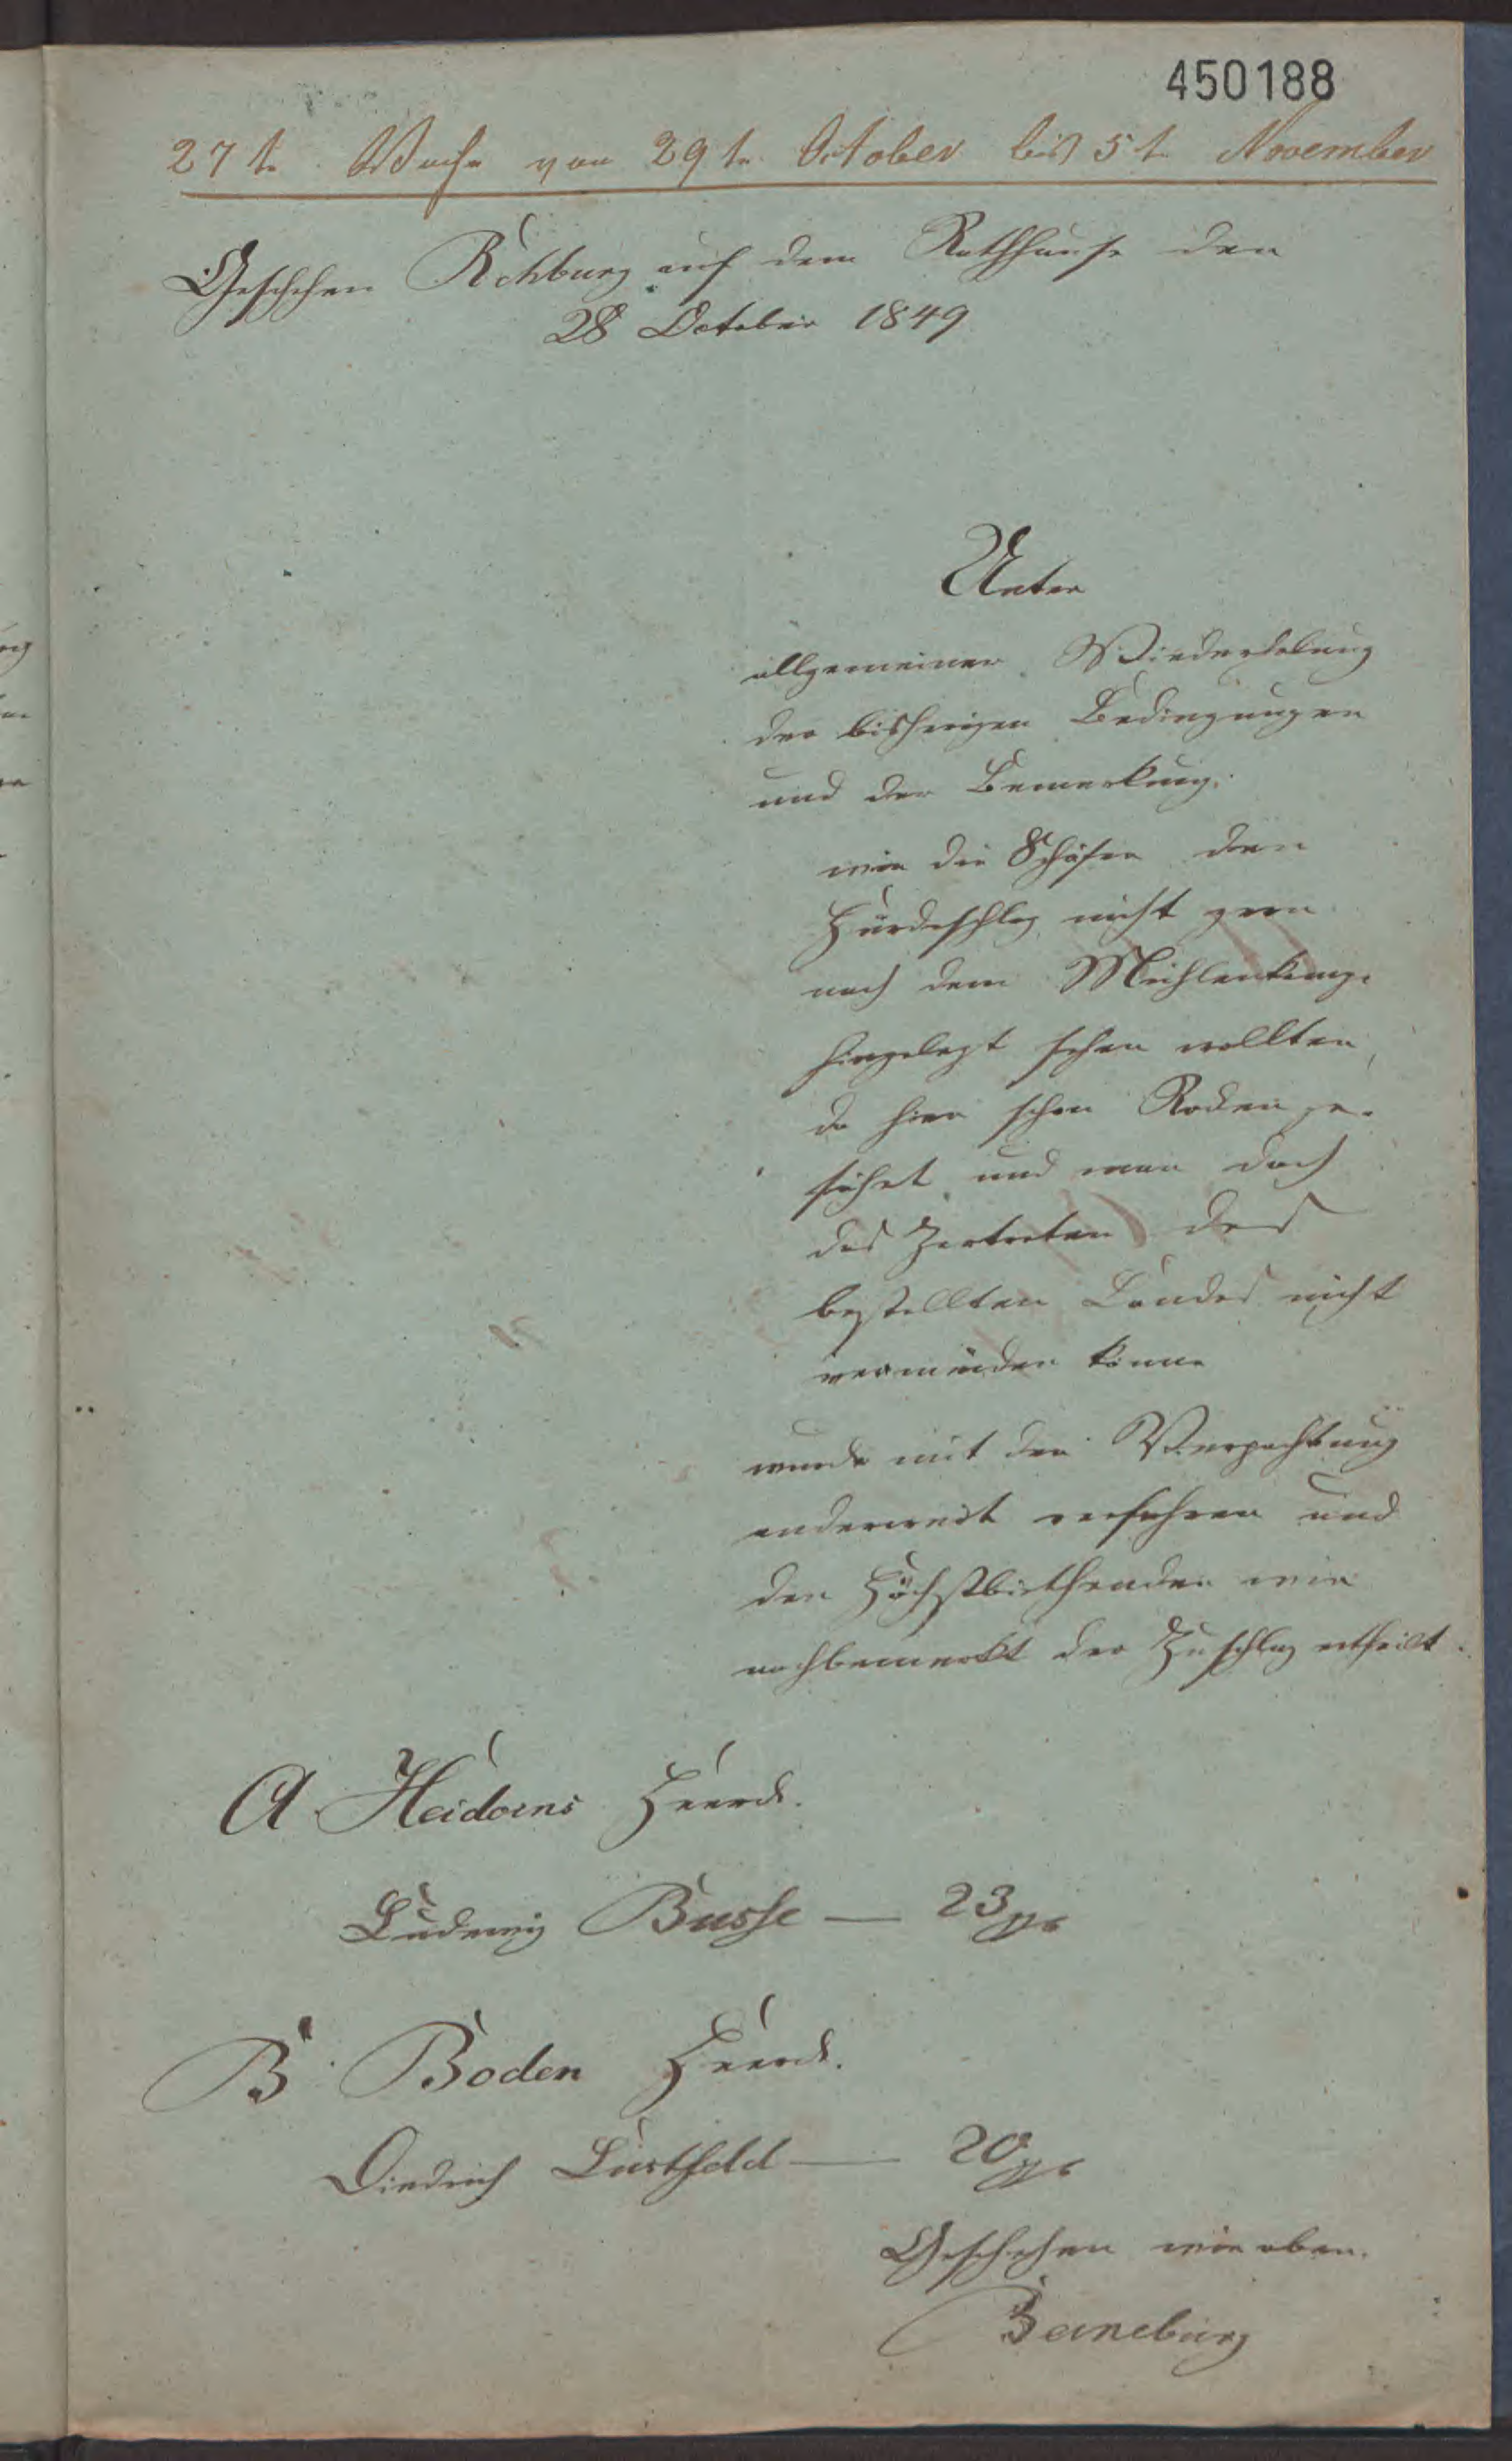 450188
27te Woche von 29te October bis 5t November
Geschehen Rehburg auf dem Rathhause den
28 October 1849
Unter
allgemeiner Wiederholung
der bisherigen Bedingungen
und der Bemerkung:
wie die Schäfer den
Hürdeschlag nicht gern
nach dem Mühlenkamp
hingelegt sehen wollten,
da hier schon Rocken ge-
säet und man doch
das Zertreten des
bestellten Landes nicht
vermeiden könne
wurde mit der Verpachtung
anderweit verfahren und
den Höchstbiethenden wie
nachbemerkt der Zuschlag ertheilt.
A Heidorns Heerde.
Ludewig Busse — 23 ggr
B. Boden Heerde.
Diedrich Lustfeld — 20 ggr
Geschehen wie oben.
Barneburg